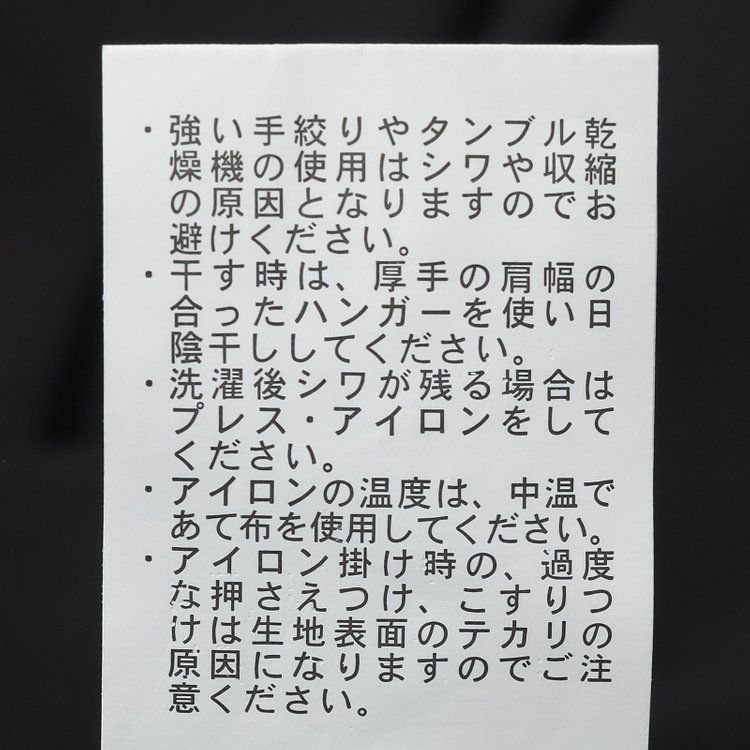 ・強い手絞りやタンブル乾
燥機の使用はシワや収縮
の原因となりますのでお
避けください。
・干す時は、厚手の肩幅の
合ったハンガーを使い日
陰干ししてください。
・洗濯後シワが残る場合は
プレス・アイロンをして
ください。
・アイロンの温度は、中温で
あて布を使用してください。
・アイロン掛け時の、過度
な押さえつけ、こすりつ
けは生地表面のテカリの
原因になりますのでご注
意ください。